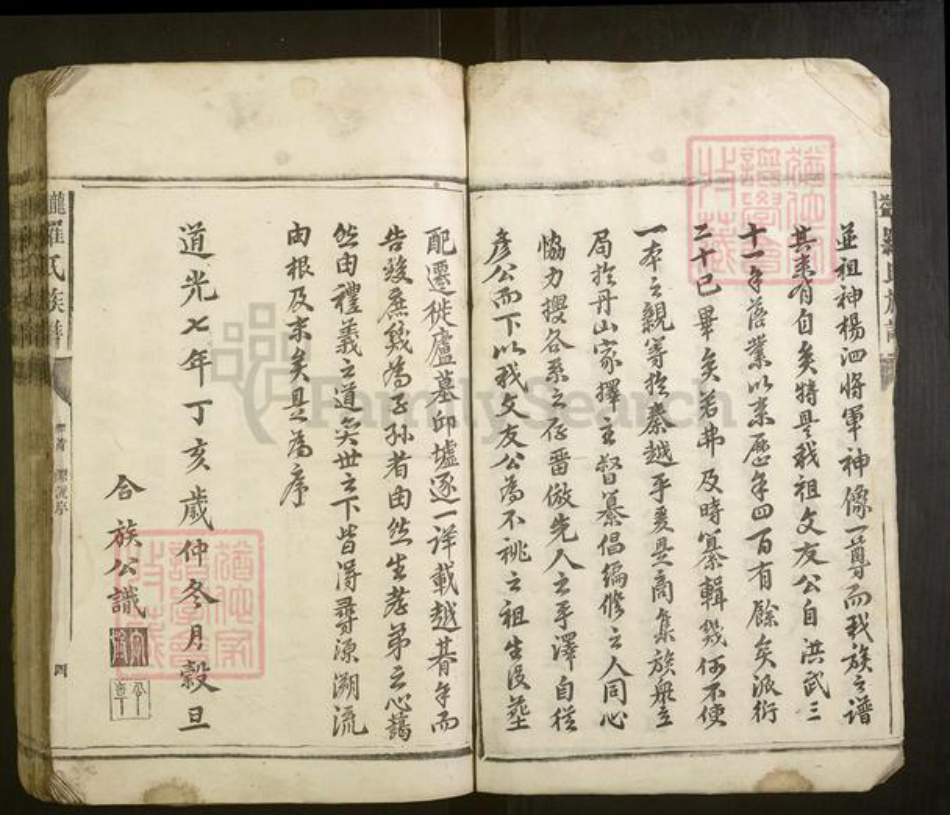 並祖神楊泗將軍神像一尊而我族之譜
其來有自矣特是我祖文友公自洪武三
十一年落業以來歷年四百有餘矣派衍
二十已畢矣若弗及時纂輯幾何不使
一本之親等於秦越乎爰是商集族衆立
局於丹山家擇主督纂倡編修之人同心
協力搜各系之存畱倣先人之手澤自從
彥公而下以我文友公為不祧之祖生沒塟
配遷徙廬墓邱墟逐一詳載越朞年而
告竣庶幾為子孫者由然生孝弟之心藹
然由禮義之道矣世之下皆得尋源溯流
由根及末矣是為序
道光七年丁亥歲仲冬月穀旦
合族公識
羅氏族譜
四
FamilySearch